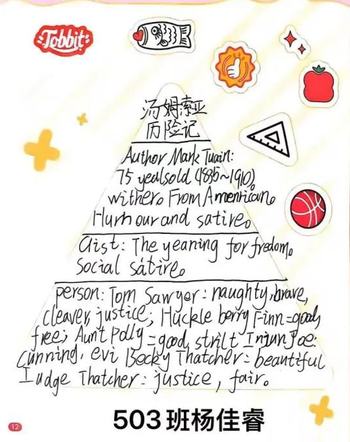 Tobbit
汤姆索亚
历险记
Author Mark Tuain:
75 yealsold (1835~1910)。
withero From Amenricano
Hurhour and satireo
Gist: The yearning for fredomo
Social satireo
person: Tom Sawyer: naughty, brave,
cleaver, justice; Huckle berry Finn=good,
free; Aunt Polly=good, strilt Injun Joe:
cunning, evi Becky Thatcher: beautiful
Iudge Thatcher: justice, fair。
12
503 班杨佳睿